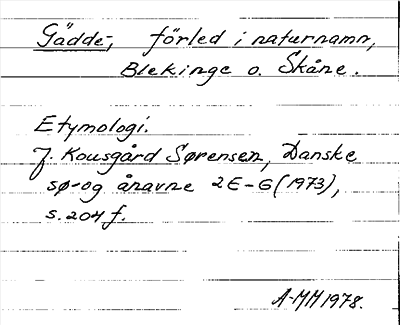 Gädde-, förled i naturnamn,
Blekinge o. Skåne.
Etymologi.
J. Kousgård Sørensen, Danske
sø- og ånavne 2 E-G (1973),
s. 204 f.
A-MH 1978.